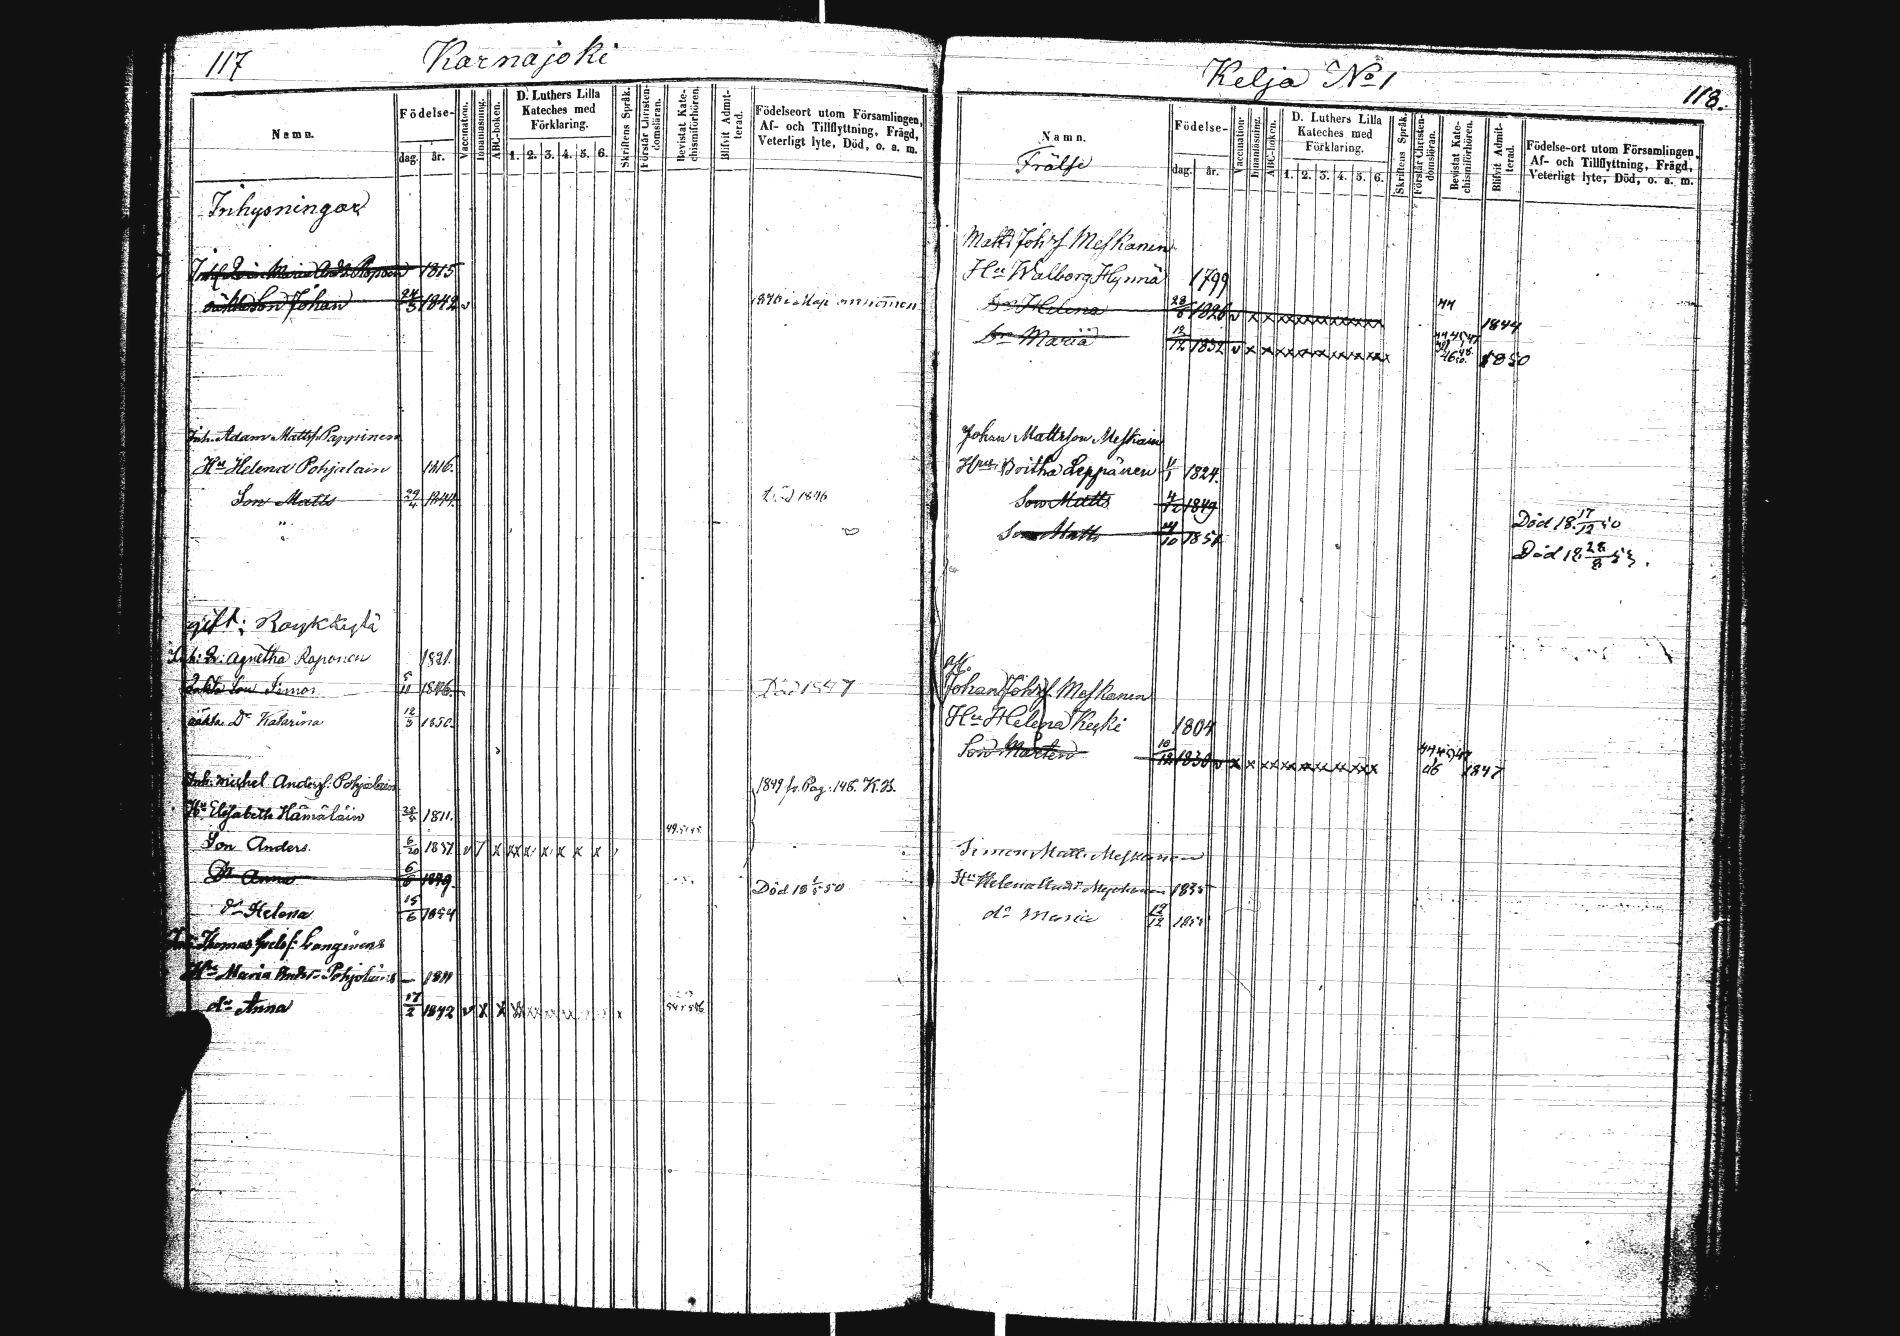 117 Karnajoki
Namn.
Födelse-
dag. år.
Vaccination.
Innanläsning.
ABC-boken.
D. Luthers Lilla
Kateches med
Förklaring.
1. 2. 3. 4. 5. 6.
Skriftens Språk.
Förstår Christen-
domsläran.
Bevistat Kate-
chismiförhören.
Blifvit Admit-
terad.
Födelseort utom Församlingen,
Af- och Tillflyttning, Frägd,
Veterligt lyte, Död, o. a. m.
Inhysningar
Maria Raponen 1815
oäkta Son Johan 24/3 1842 v
Inh. Adam Mattsf. Pappinen
Hu Helena Pohjalain 1816.
Son Matts 29/4 1844 Död 1846
gift:
Agnetha Raponen 1821.
oäkta Son Simon 5/11 1846. Död 1847
oäkta Dr Katrina 12/3 1850.
Inh: Michel Andersf. Pohjalain 1849 fr. Pag. 146. K.B.
Hu Elisabeth Hämäläin 25/5 1811.
Son Anders. 6/20 1837 v / x xx x x x x x
Dr Anna 6/6 1849. Död 18 1/5 50
dr Helena 15/6 1854
Thomas
Hu Maria Andr. Pohjolain — 1811
dr Anna 17/2 1842 v x x xx
Kelja No 1 118.
Namn.
Frälse
Födelse-
dag. år.
Vaccination
Innanläsning.
ABC-boken.
D. Luthers Lilla
Kateches med
Förklaring.
1. 2. 3. 4. 5. 6.
Skriftens Språk.
Förstår Christen-
domsläran.
Bevistat Kate-
chismiförhören.
Blifvit Admit-
terad.
Födelse-ort utom Församlingen,
Af- och Tillflyttning, Frägd,
Veterligt lyte, Död, o. a. m.
Matts Johsf Meskanen
Hu Walborg Hynnä 1799
Dr Helena 28/8 1826 v x x xxxxxxxxxx 44 1844
Dr Maria 12/12 1832 v x x xxxxxxxxx 1850
Johan Mattsson Meskain
Hu Britha Leppänen 11/1 1824.
Son Matts 4/12 1849 Död 18 17/12 50
Son Matts 14/10 1851 Död 18 28/8 53.
Johan Johsf Meskanen
Hu Helena Keski 1804
Son Morten 10/12 1830 v x x xxxxxxxxx 1847
Simon Matts. Meskanen
Hu Helena Andr. 1835
dr Maria 19/12 1855